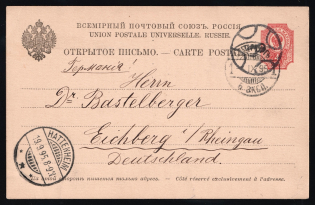 ВСЕМІРНЫЙ ПОЧТОВЫЙ СОЮЗЪ. РОССІЯ.
UNION POSTALE UNIVERSELLE. RUSSIE.
ОТКРЫТОЕ ПИСЬМО. — CARTE POSTALE.
Германія!
Herrn
Dr Bastelberger
Eichberg i/Rheingau
Deutschland.
HATTENHEIM
19.9.95. 8-9V.
Côté réservé exclusivement à l'adresse.